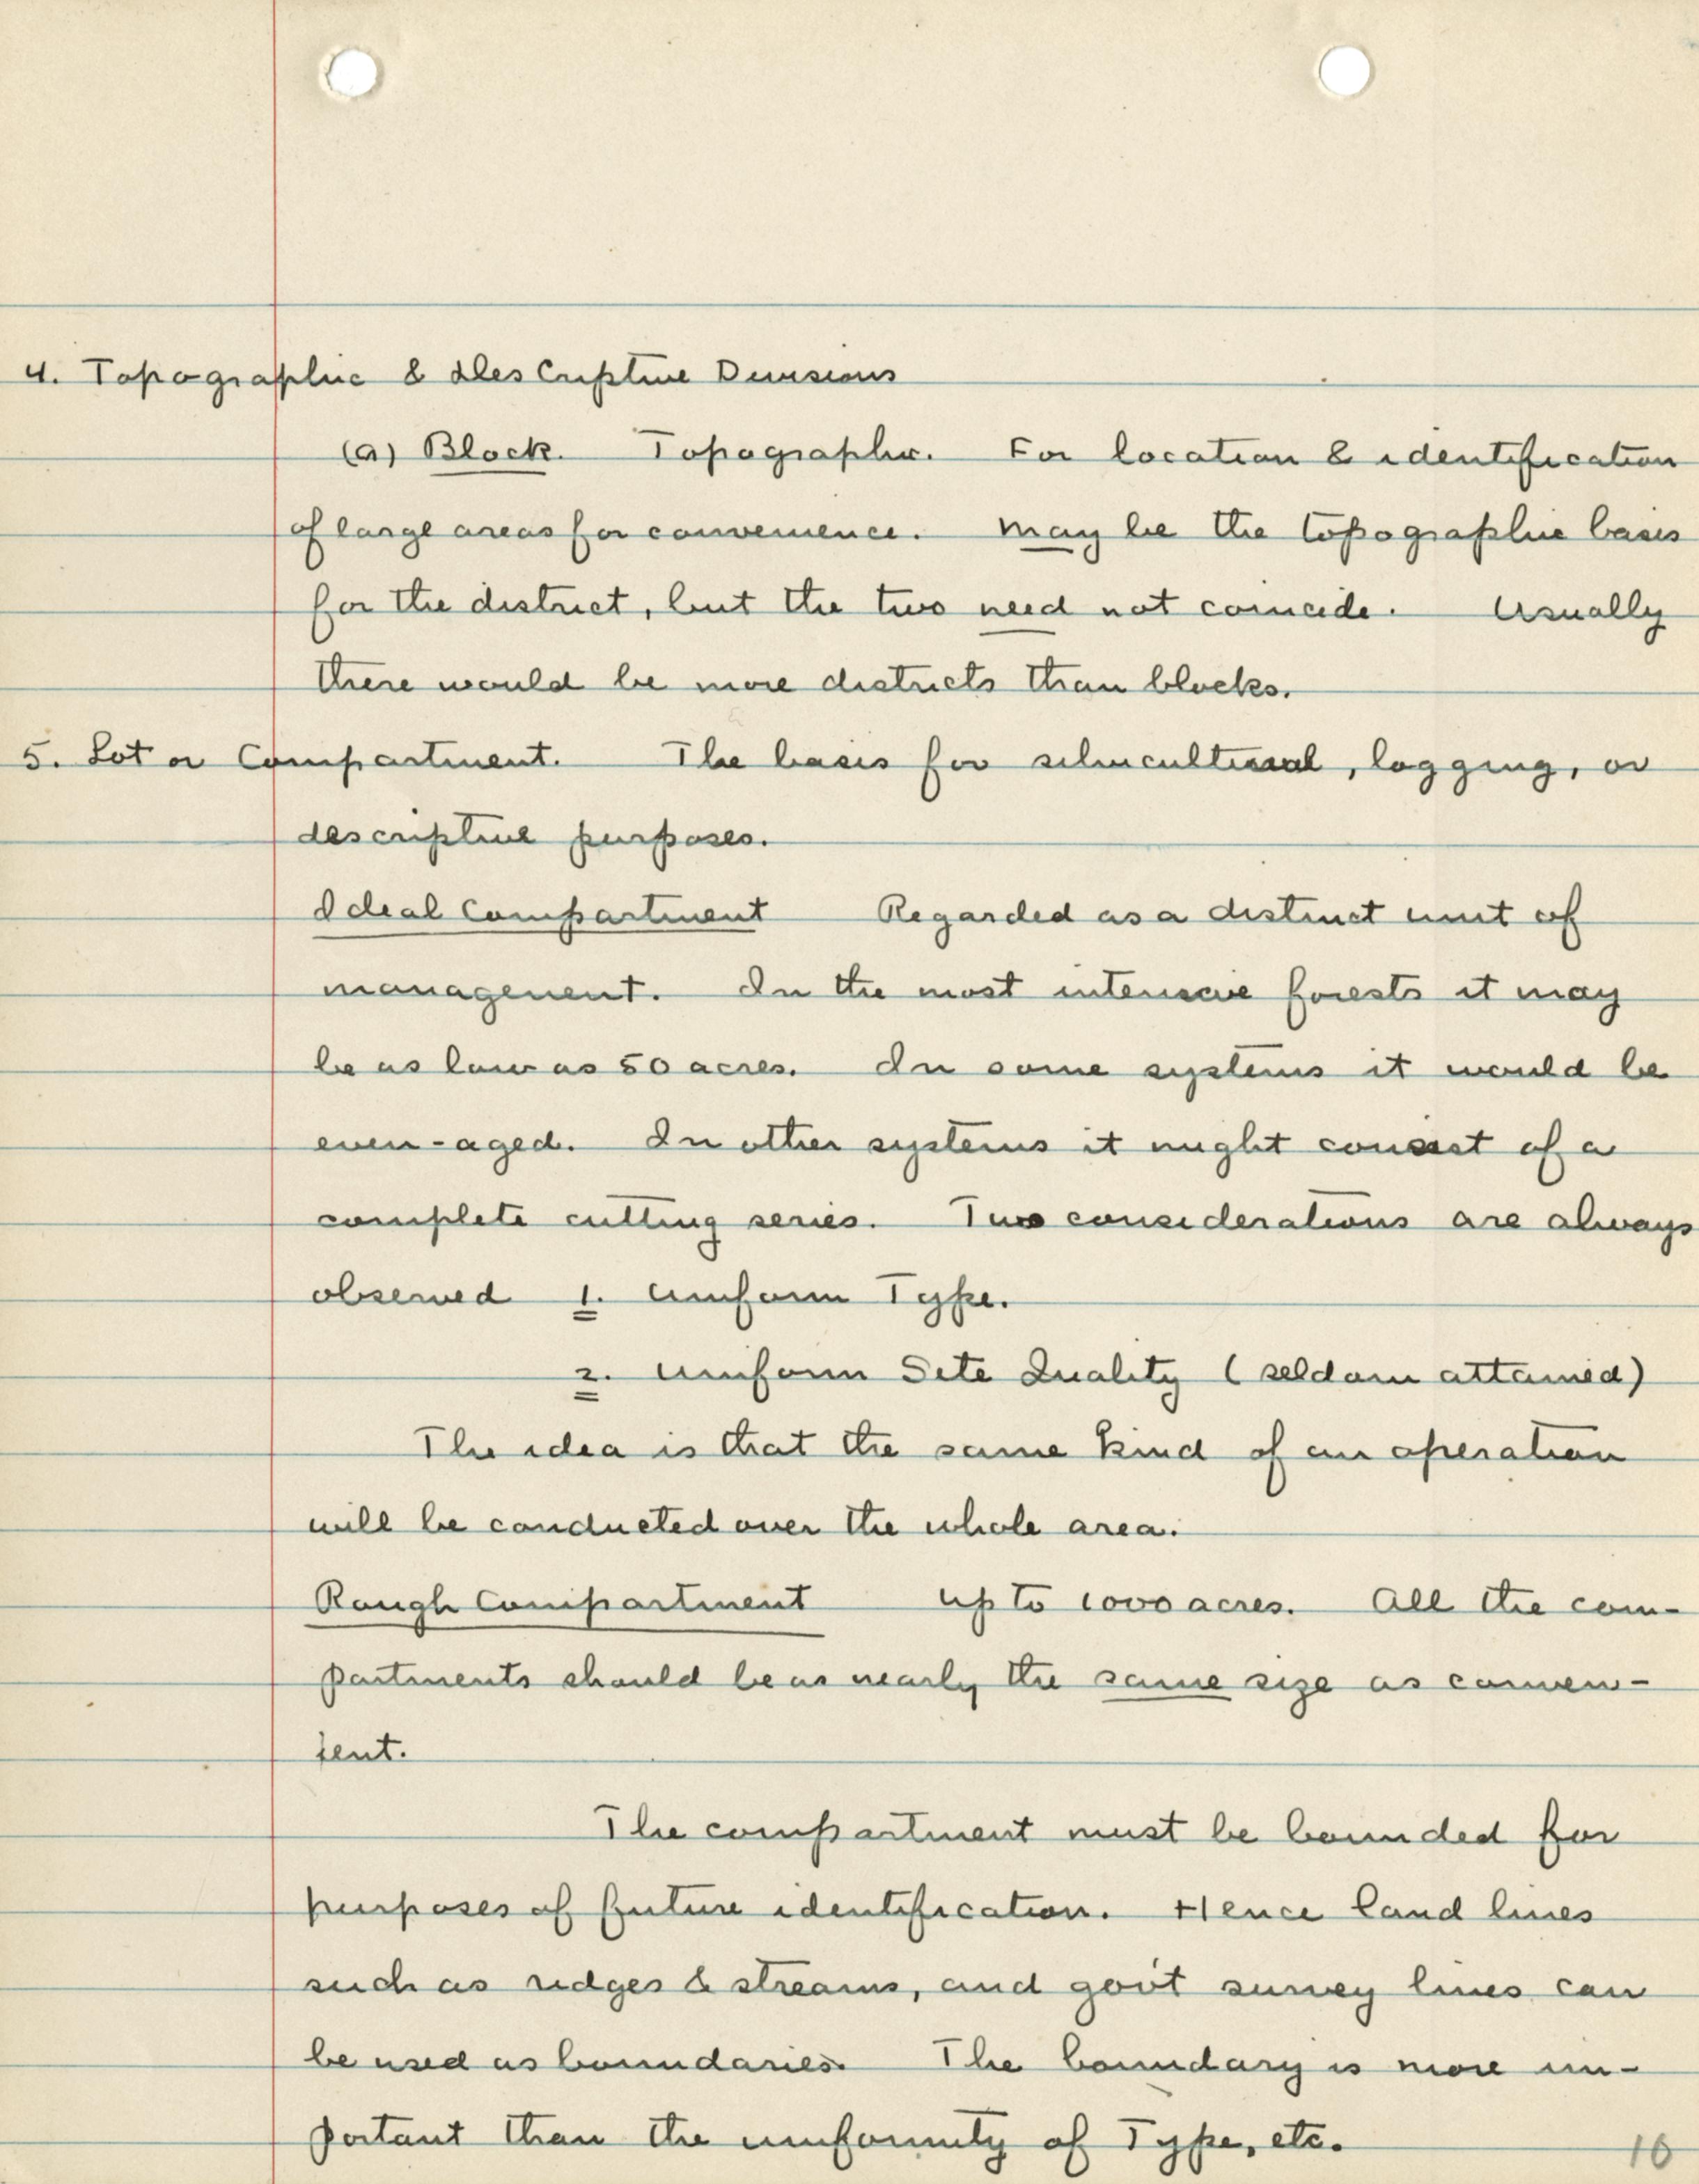 4. Topographic & Descriptive Divisions
(a) Block. Topographic. For location & identification
of large areas for convenience. May be the topographic basis
for the district, but the two need not coincide. Usually
there would be more districts than blocks.
5. Lot or Compartment. The basis for silvicultural, logging, or
descriptive purposes.
Ideal Compartment Regarded as a distinct unit of
management. In the most intensive forests it may
be as low as 50 acres. In some systems it would be
even-aged. In other systems it might consist of a
complete cutting series. Two considerations are always
observed 1. Uniform Type.
2. Uniform Site Quality (seldom attained)
The idea is that the same kind of an operation
will be conducted over the whole area.
Rough Compartment up to 1000 acres. All the com-
partments should be as nearly the same size as conven-
ient.
The compartment must be bounded for
purposes of future identification. Hence land lines
such as ridges & streams, and gov't survey lines can
be used as boundaries. The boundary is more im-
portant than the uniformity of Type, etc.
16